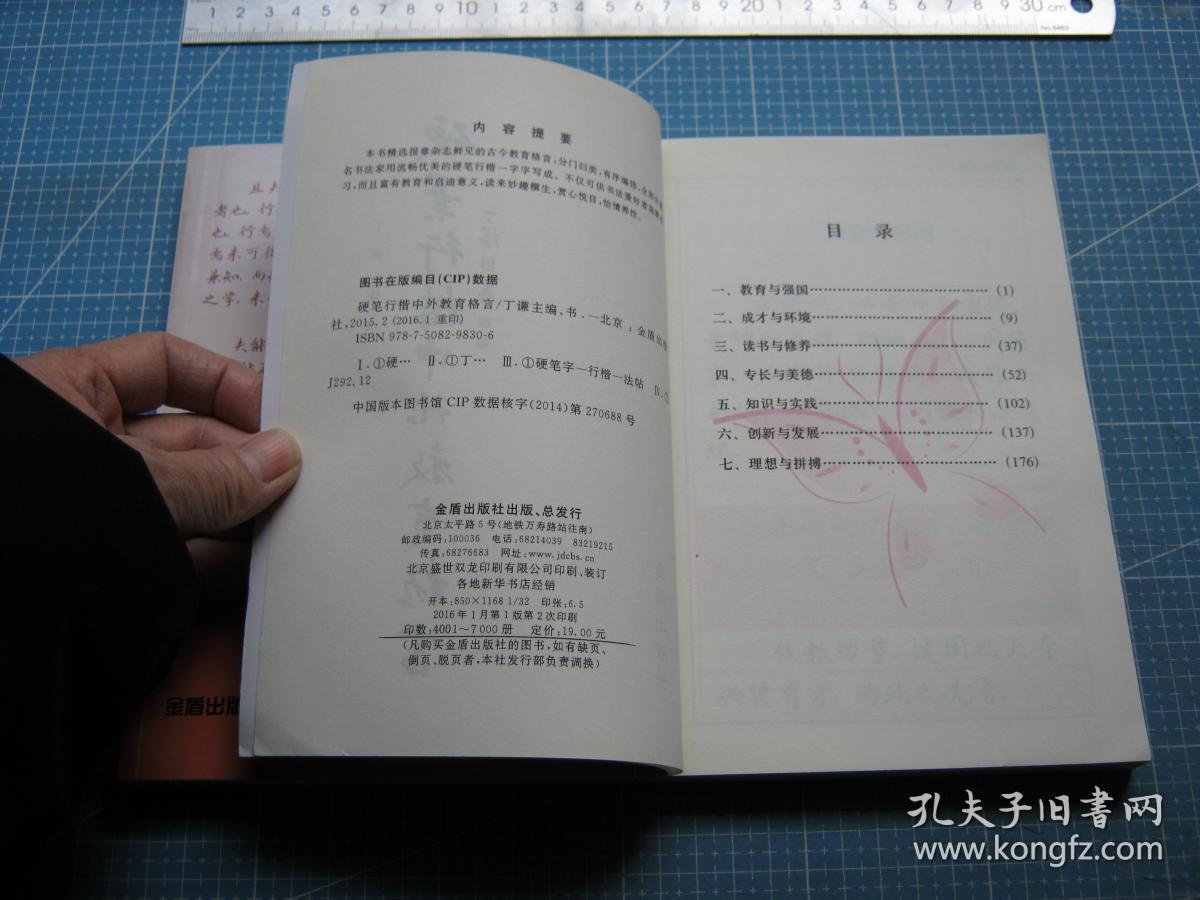 1 2 3 4 5 6 7 8 9 10 1 2 3 4 5 6 7 8 9 20 1 2 3 4 5 6 7 8 9 30 cm
No.8463
且夫
者也,行
也,行高
高未可
兼知,而
之学,未
夫能
金盾出版
内容提要
本书精选报章杂志鲜见的古今教育格言,分门归类,有序编排,全部由
名书法家用流畅优美的硬笔行楷一字字写成。不仅可供书法爱好者
习,而且富有教育和启迪意义,读来妙趣横生,赏心悦目,怡情养性。
图书在版编目(CIP)数据
硬笔行楷中外教育格言/丁谦主编、书.—北京:金盾出版
社,2015.2(2016.1重印)
ISBN 978-7-5082-9830-6
Ⅰ.①硬… Ⅱ.①丁… Ⅲ.①硬笔字—行楷—法帖 Ⅳ.①
J292.12
中国版本图书馆CIP数据核字(2014)第270688号
金盾出版社出版、总发行
北京太平路5号(地铁万寿路站往南)
邮政编码:100036 电话:68214039 83219215
传真:68276683 网址:www.jdcbs.cn
北京盛世双龙印刷有限公司印刷、装订
各地新华书店经销
开本:850×1168 1/32 印张:6.5
2016年1月第1版第2次印刷
印数:4001~7000册 定价:19.00元
(凡购买金盾出版社的图书,如有缺页、
倒页、脱页者,本社发行部负责调换)
目录
一、教育与强国………………………(1)
二、成才与环境………………………(9)
三、读书与修养………………………(37)
四、专长与美德………………………(52)
五、知识与实践………………………(102)
六、创新与发展………………………(137)
七、理想与拼搏………………………(176)
孔夫子旧書网
www.kongfz.com